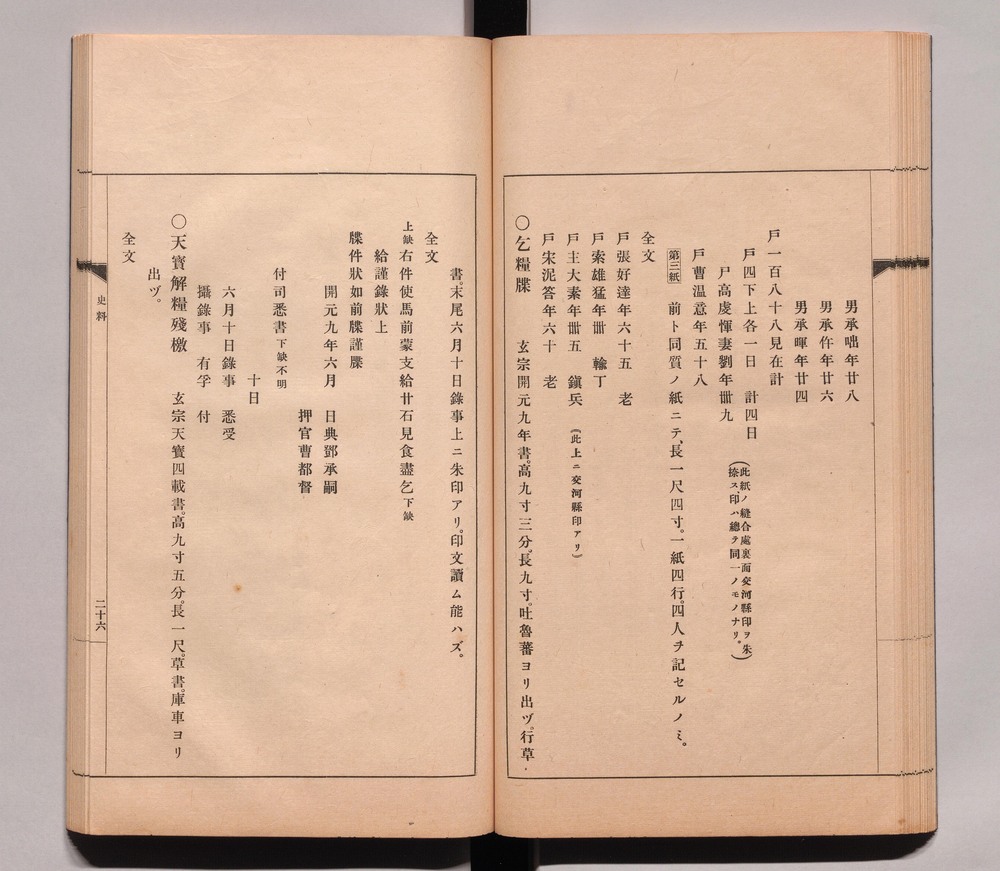 男承咄年廿八
男承仵年廿六
男承暉年廿四
戶一百八十八見在計
戶四下上各一日　計四日
戶高虔惲妻劉年卌九
（此紙ノ縫合處裏面交河縣印ヲ朱
捺ス、印ハ總テ同一ノモノナリ。）
戶曹溫意年五十八
第三紙　前ト同質ノ紙ニテ、長一尺四寸。一紙四行。四人ヲ記セルノミ。
全文
戶張好達年六十五　老
戶索雄猛年卌　輸丁
戶主大素年卌五　鎭兵　（此上ニ交河縣印アリ）
戶宋泥答年六十　老
〇乞糧牒　玄宗開元九年書。高九寸三分、長九寸。吐魯蕃ヨリ出ヅ。行草
書。末尾六月十日錄事上ニ朱印アリ。印文讀ム能ハズ。
全文
上缺右件使馬前蒙支給廿石見食盡乞下缺
給謹錄狀上
牒件狀如前牒謹牒
開元九年六月　日典鄧承嗣
押官曹都督
付司悉書下缺不明
十日
六月十日錄事　悉受
攝錄事　有孚　付
〇天寶解糧殘檄　玄宗天寶四載書。高九寸五分。長一尺。草書。庫車ヨリ
出ヅ。
全文
史料
二十六